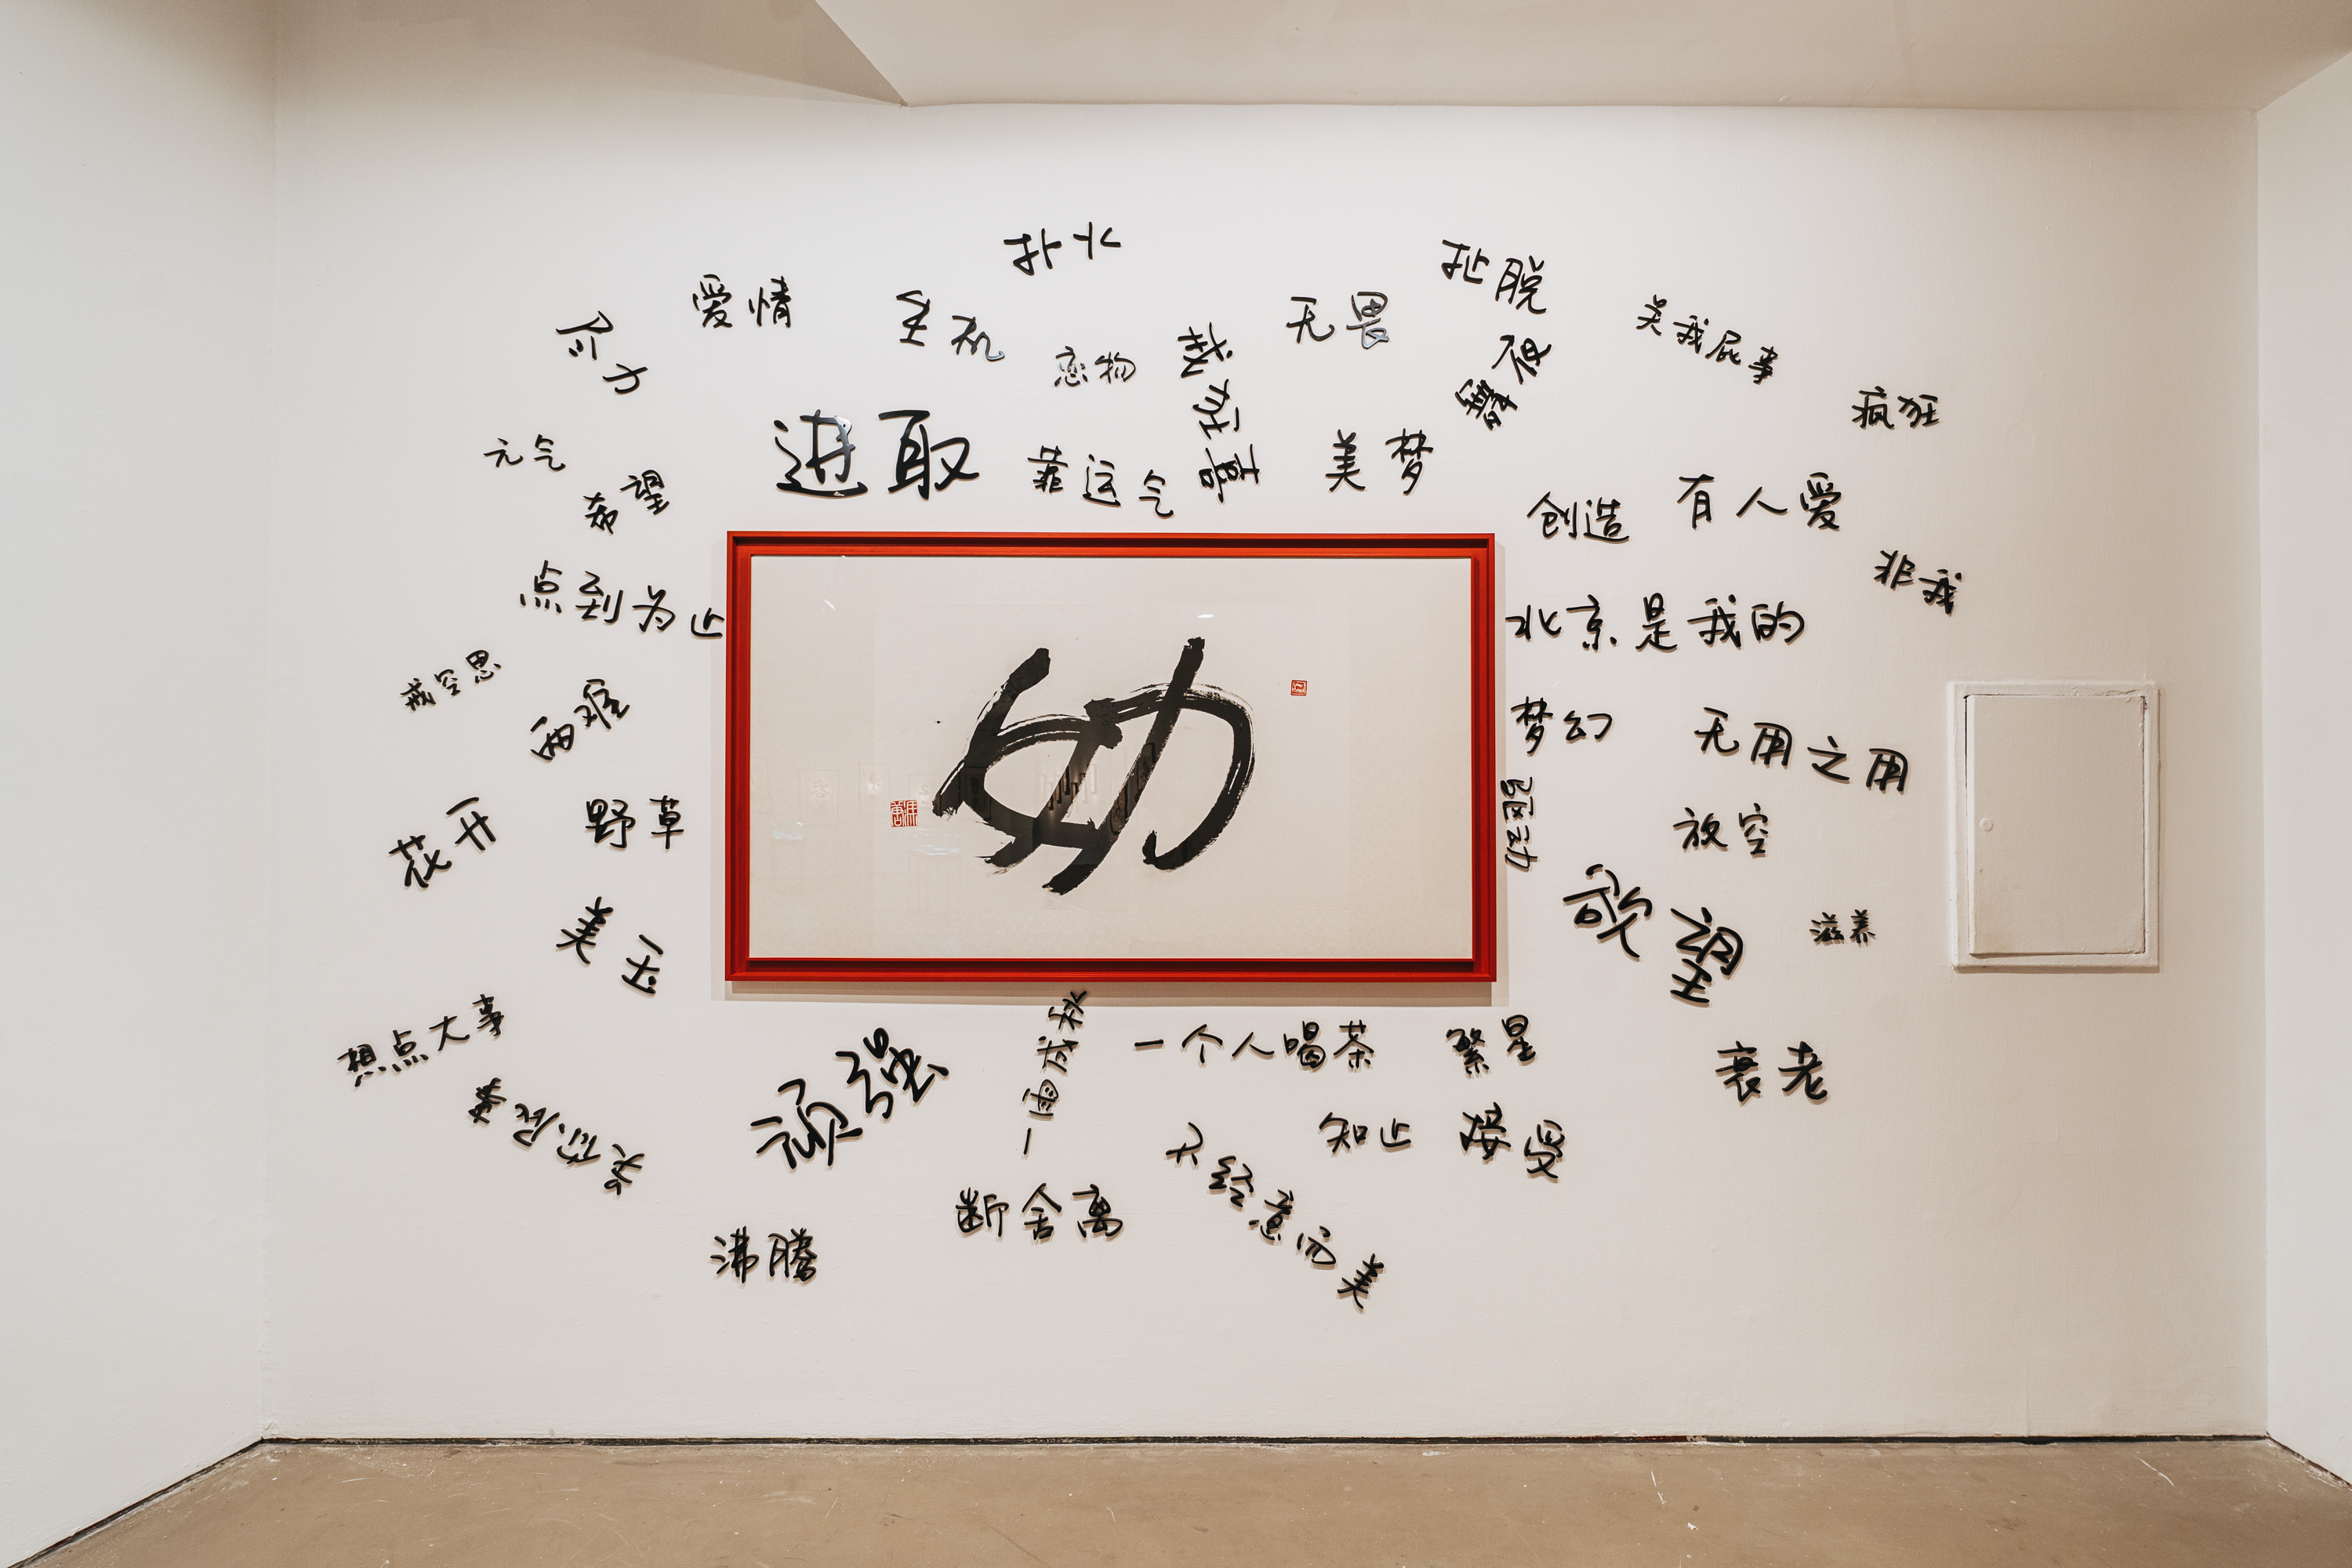 扑火
扯脱
爱情
生机
无畏
关我屁事
恋物
疯狂
元气
进取
靠运气
美梦
希望
创造
有人爱
点到为止
非我
北京是我的
戒空思
两难
梦幻
无用之用
幼
驱动
花开
野草
放空
美玉
欲望
滋养
想点大事
一雨成秋
一个人喝茶
繁星
衰老
关你屁事
顽强
知止
接受
不经意而美
断舍离
沸腾